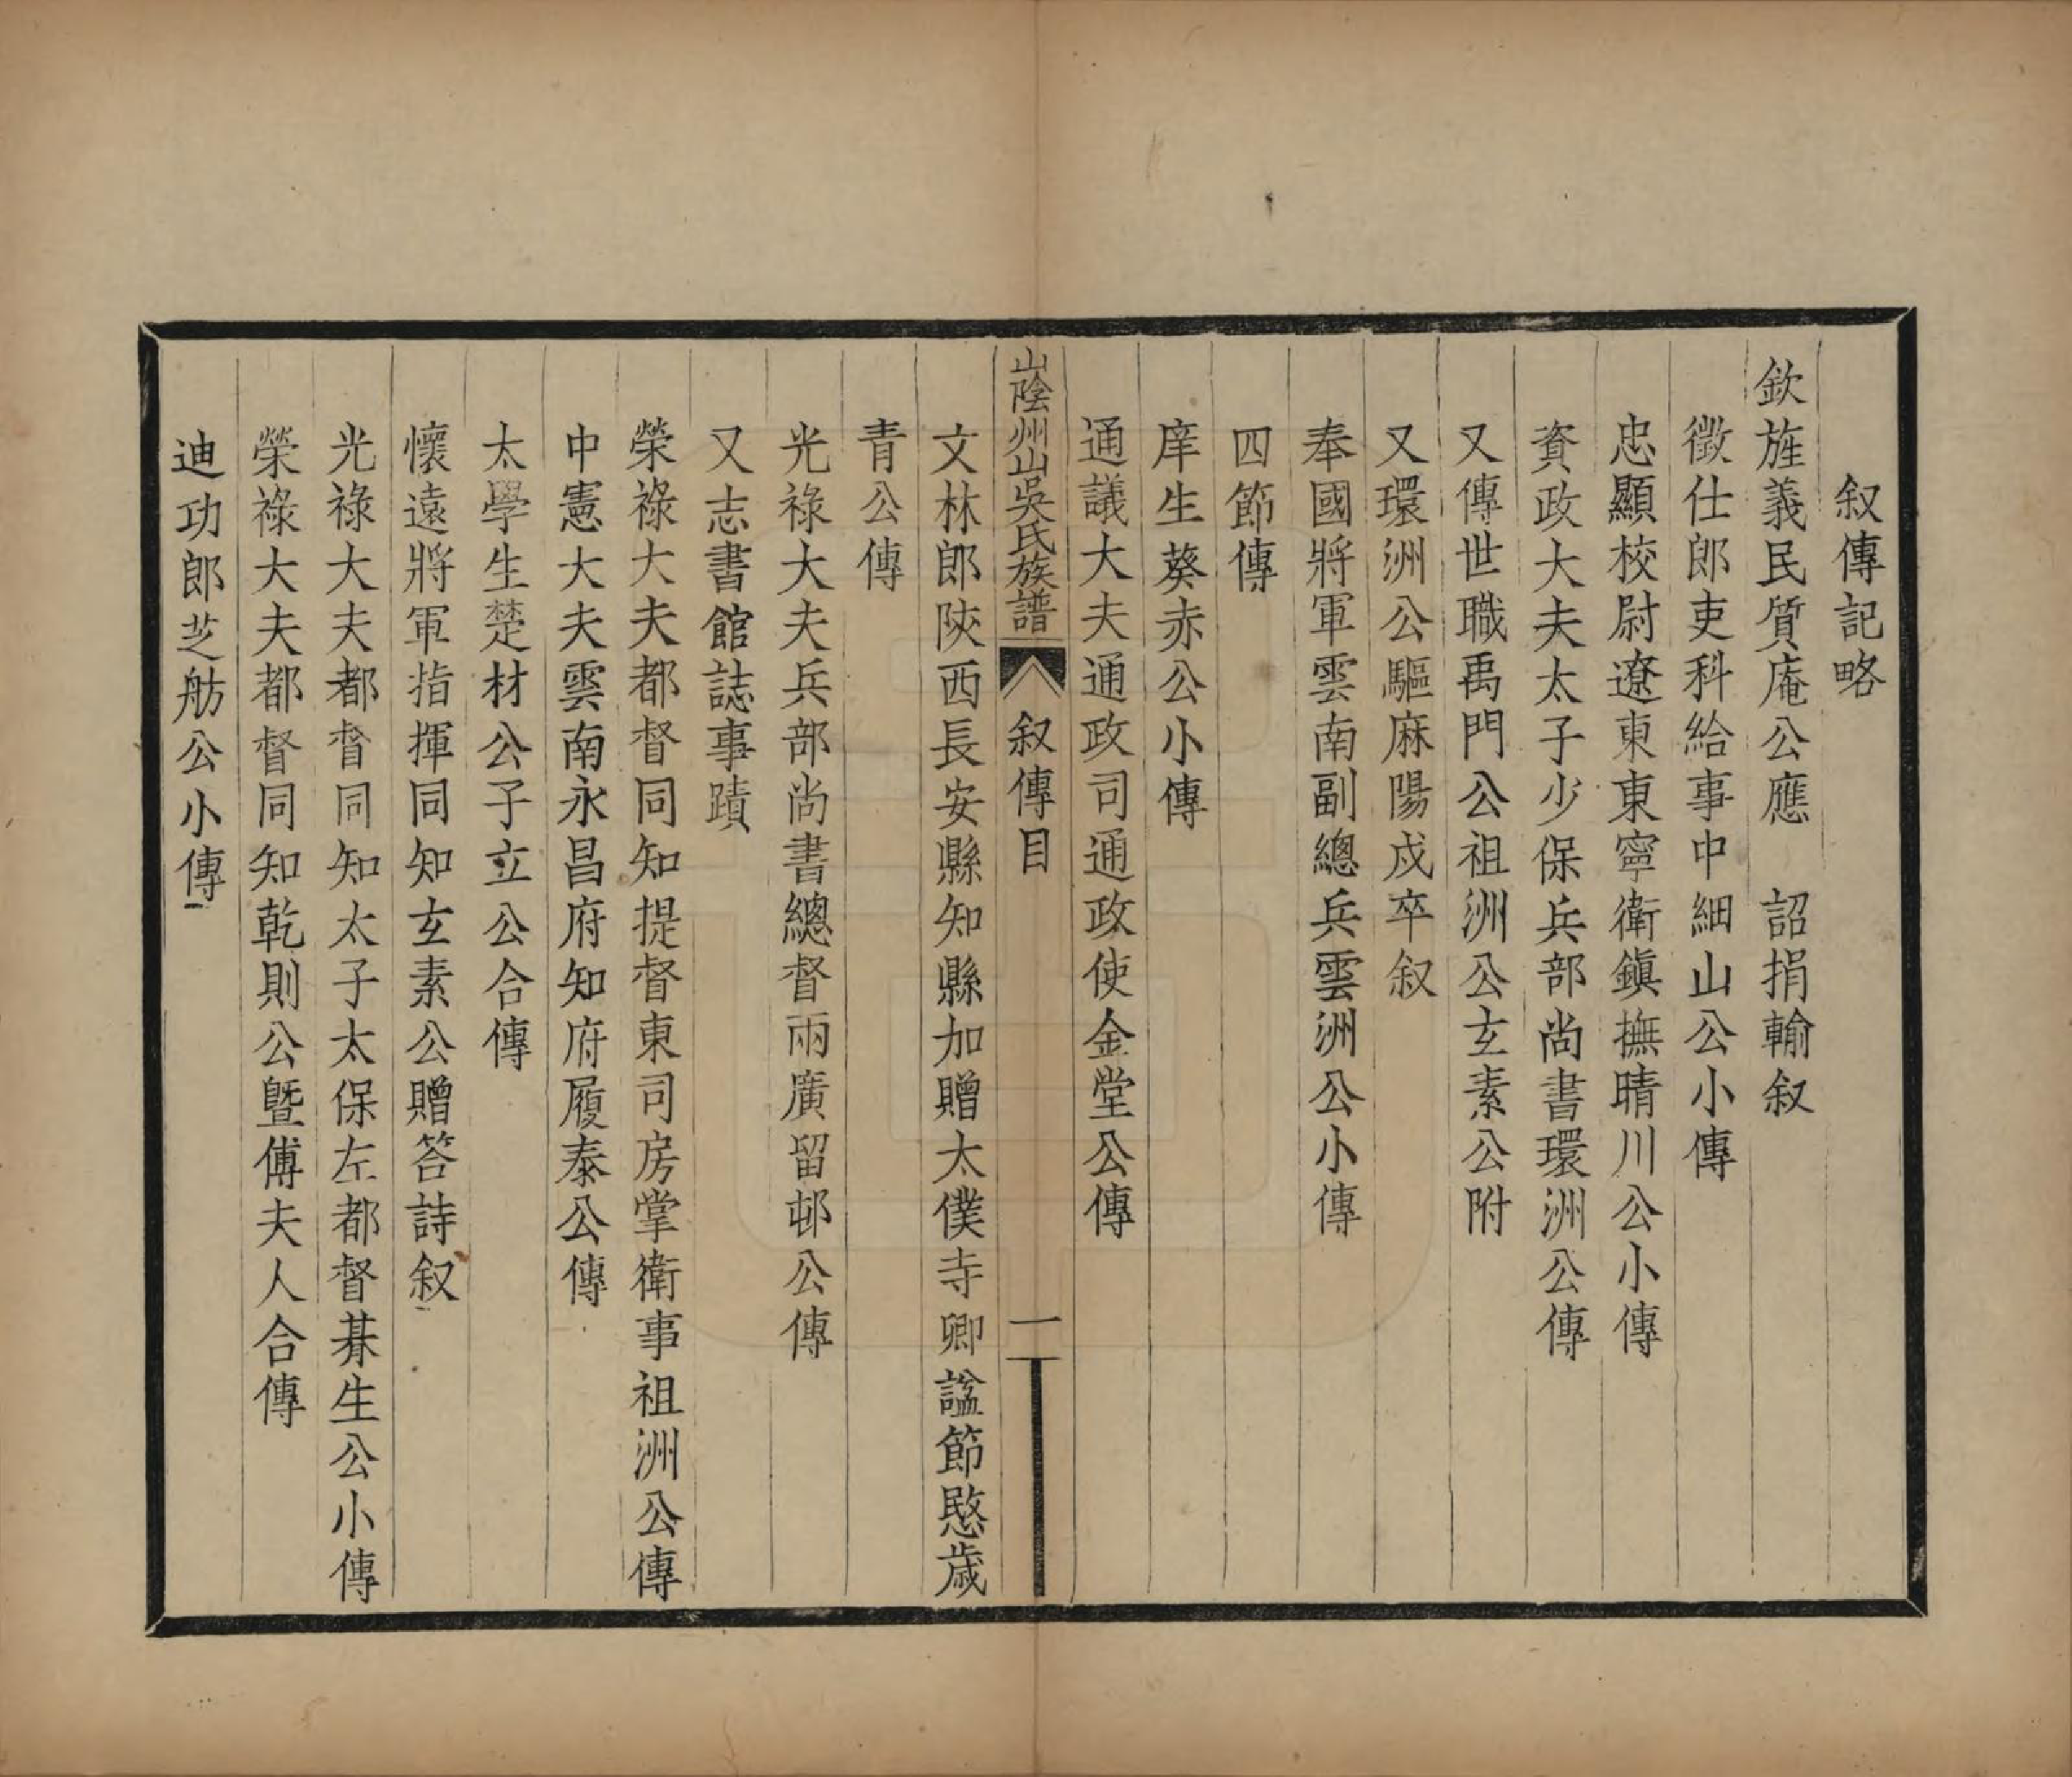 叙傳記略
欽旌義民質庵公應　詔捐輸叙
徵仕郎吏科給事中細山公小傳
忠顯校尉遼東東寧衛鎮撫晴川公小傳
資政大夫太子少保兵部尚書環洲公傳
又傳世職禹門公祖洲公玄素公附
又環洲公驅麻陽戍卒叙
奉國將軍雲南副總兵雲洲公小傳
四節傳
庠生葵赤公小傳
通議大夫通政司通政使金堂公傳
山陰州山吳氏族譜
叙傳目
一
文林郎陝西長安縣知縣加贈太僕寺卿諡節愍歲
青公傳
光祿大夫兵部尚書總督兩廣留邨公傳
又志書館誌事蹟
榮祿大夫都督同知提督東司房掌衛事祖洲公傳
中憲大夫雲南永昌府知府履泰公傳
太學生楚材公子立公合傳
懷遠將軍指揮同知玄素公贈答詩叙
光祿大夫都督同知太子太保左都督朞生公小傳
榮祿大夫都督同知乾則公暨傅夫人合傳
迪功郎芝舫公小傳